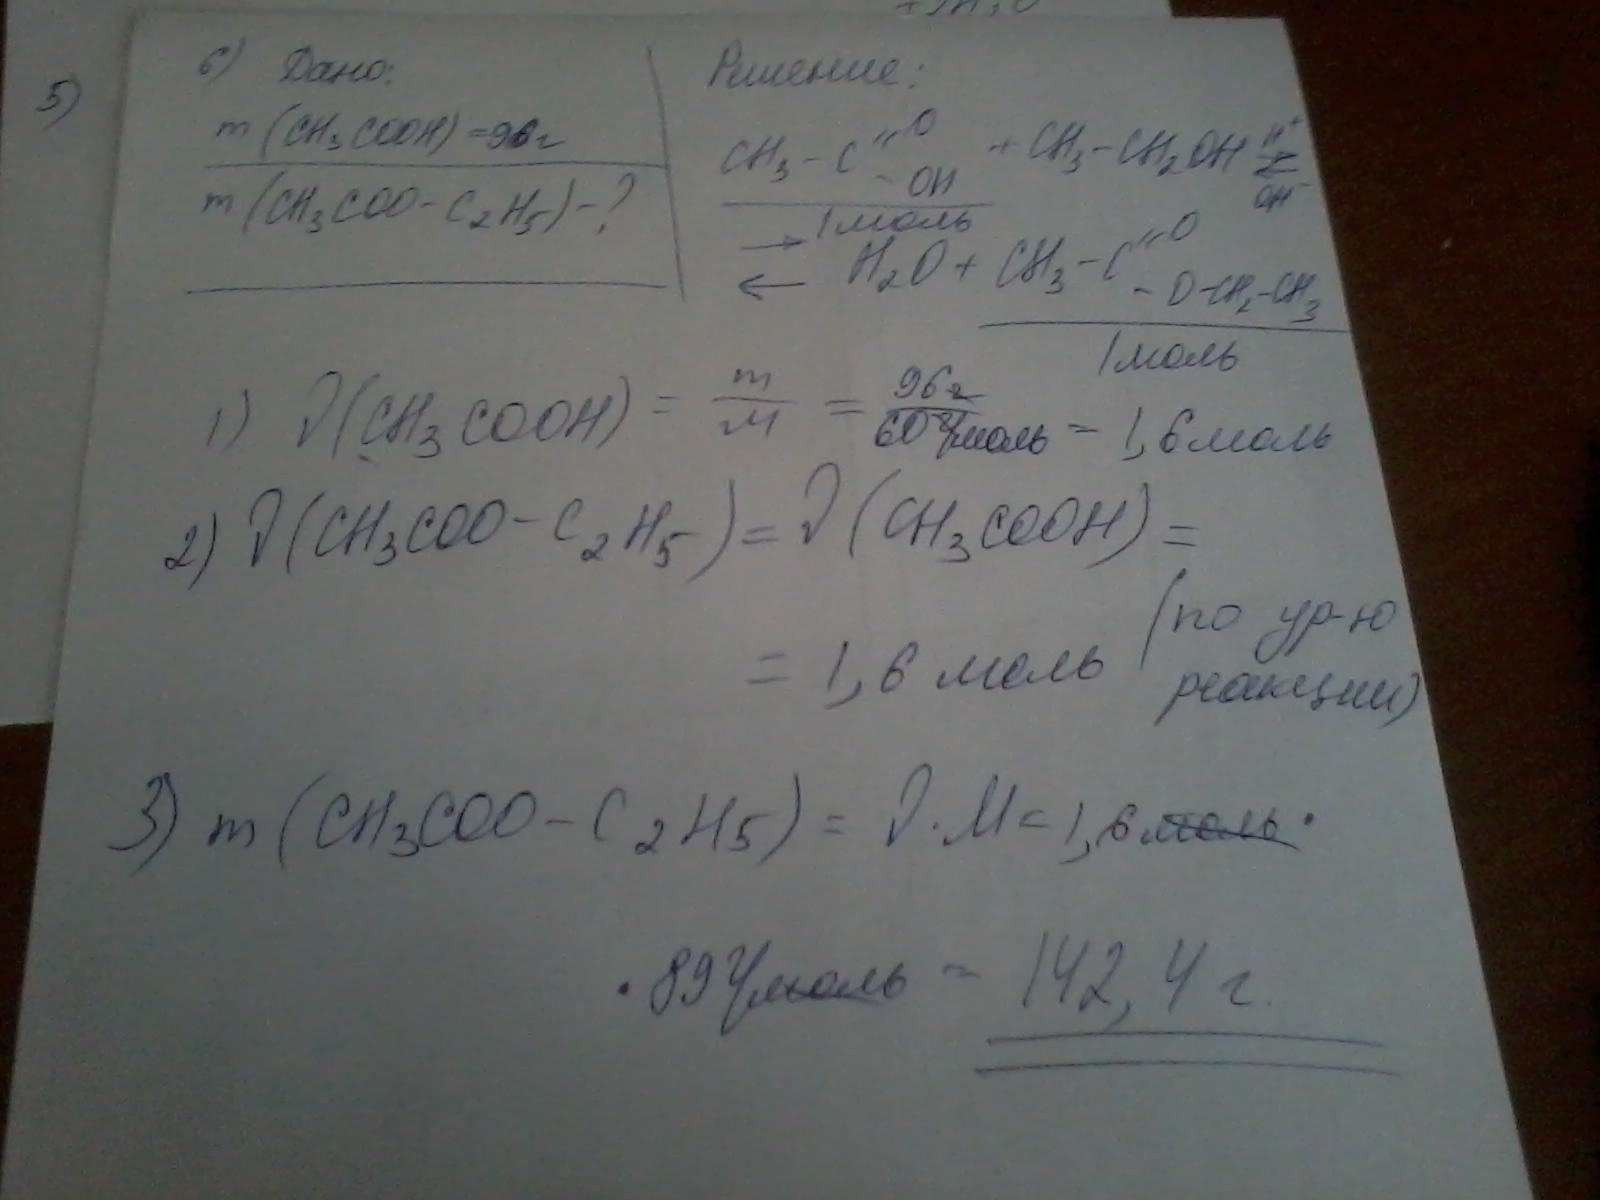 +3H₂O
5)
6) Дано:
m (CH₃COOH) = 96г
m (CH₃COO-C₂H₅) - ?
Решение:
CH₃ - C = O - OH + CH₃ - CH₂OH H⁺ ⇄ OH⁻
1 моль
→ ← H₂O + CH₃ - C = O - O-CH₂-CH₃
1 моль
1) ν(CH₃COOH) = m/M = 96г / 60 г/моль = 1,6 моль
2) ν(CH₃COO-C₂H₅) = ν(CH₃COOH) =
= 1,6 моль (по ур-ю
реакции)
3) m (CH₃COO-C₂H₅) = ν·M = 1,6 моль ·
· 89 г/моль = 142,4 г.